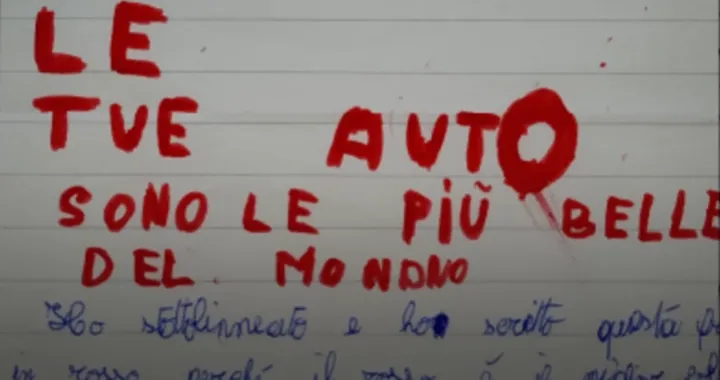 LE
TUE AUTO
SONO LE PIÙ BELLE
DEL MONDNO
Ho sottolinneato e ho scritto questa
in rosso perché il rosso è il